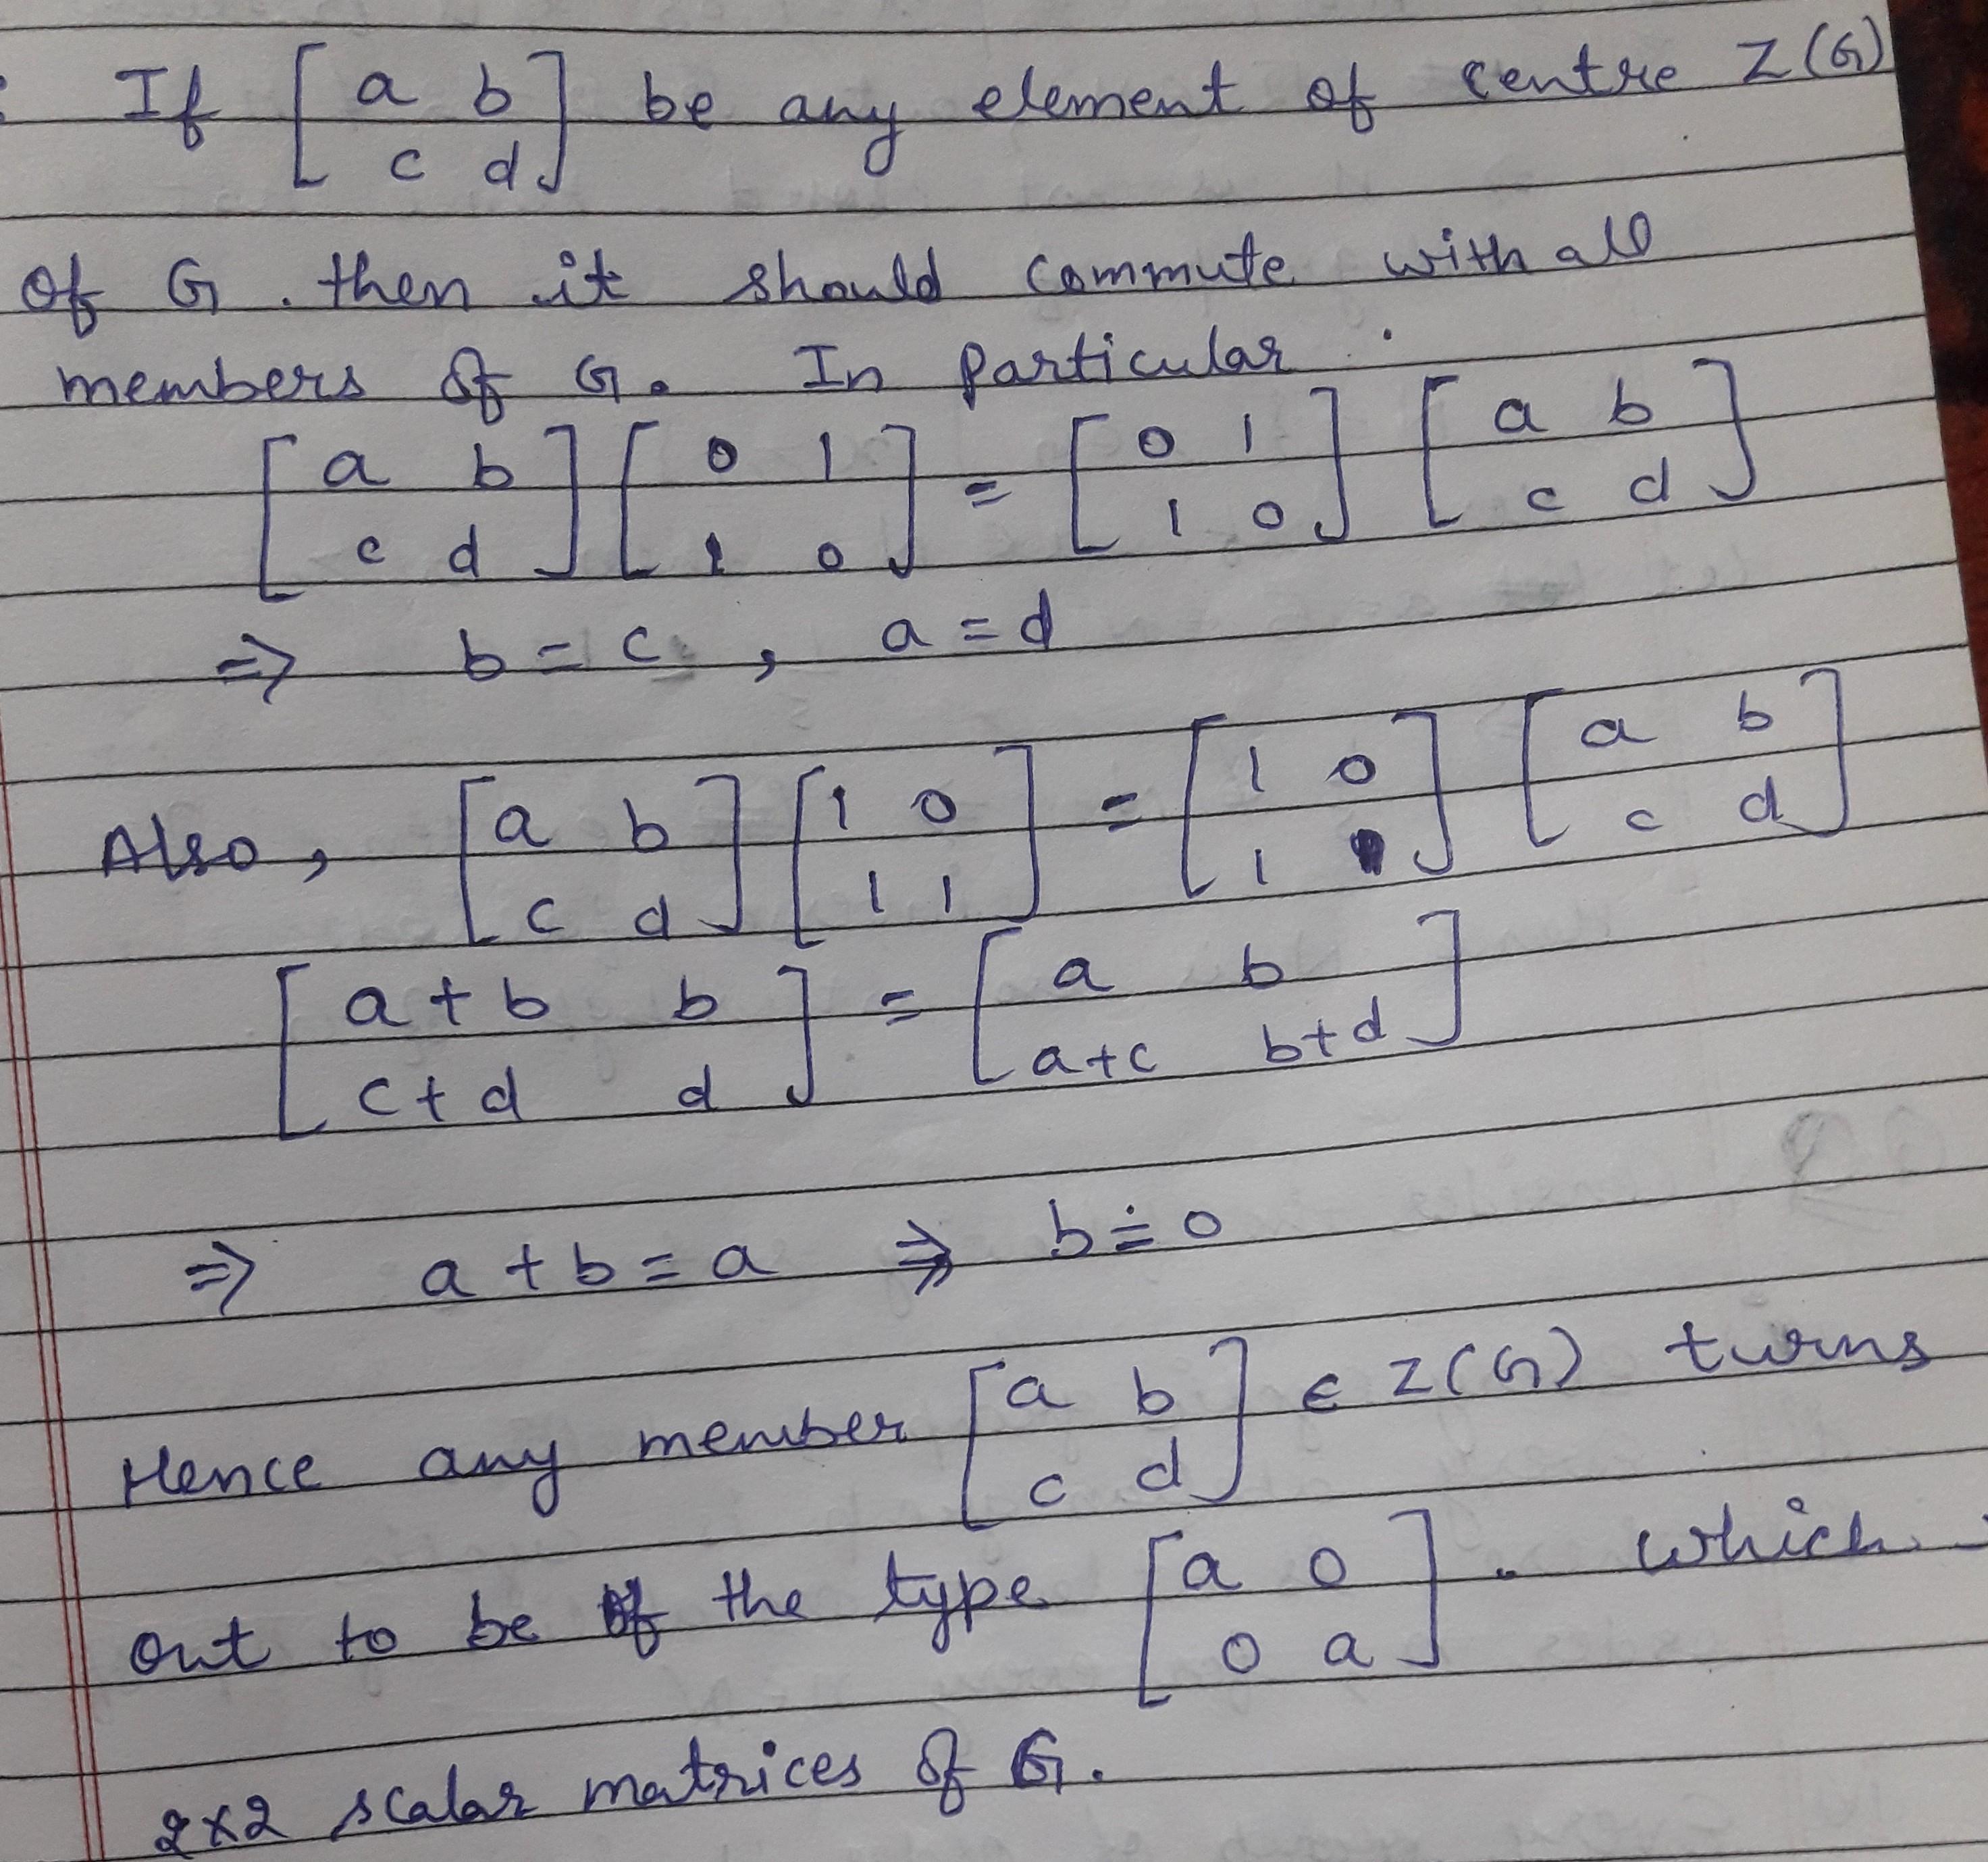 : If [a b; c d] be any element of centre Z(G)
of G. then it should commute with all
members of G. In particular.
[a b; c d] [0 1; 1 0] = [0 1; 1 0] [a b; c d]
⇒ b = c, a = d
Also, [a b; c d] [1 0; 1 1] = [1 0; 1 1] [a b; c d]
[a+b b; c+d d] = [a b; a+c b+d]
⇒ a + b = a ⇒ b = 0
Hence any member [a b; c d] ∈ Z(G) turns
out to be of the type [a 0; 0 a]. which
2×2 scalar matrices of G.